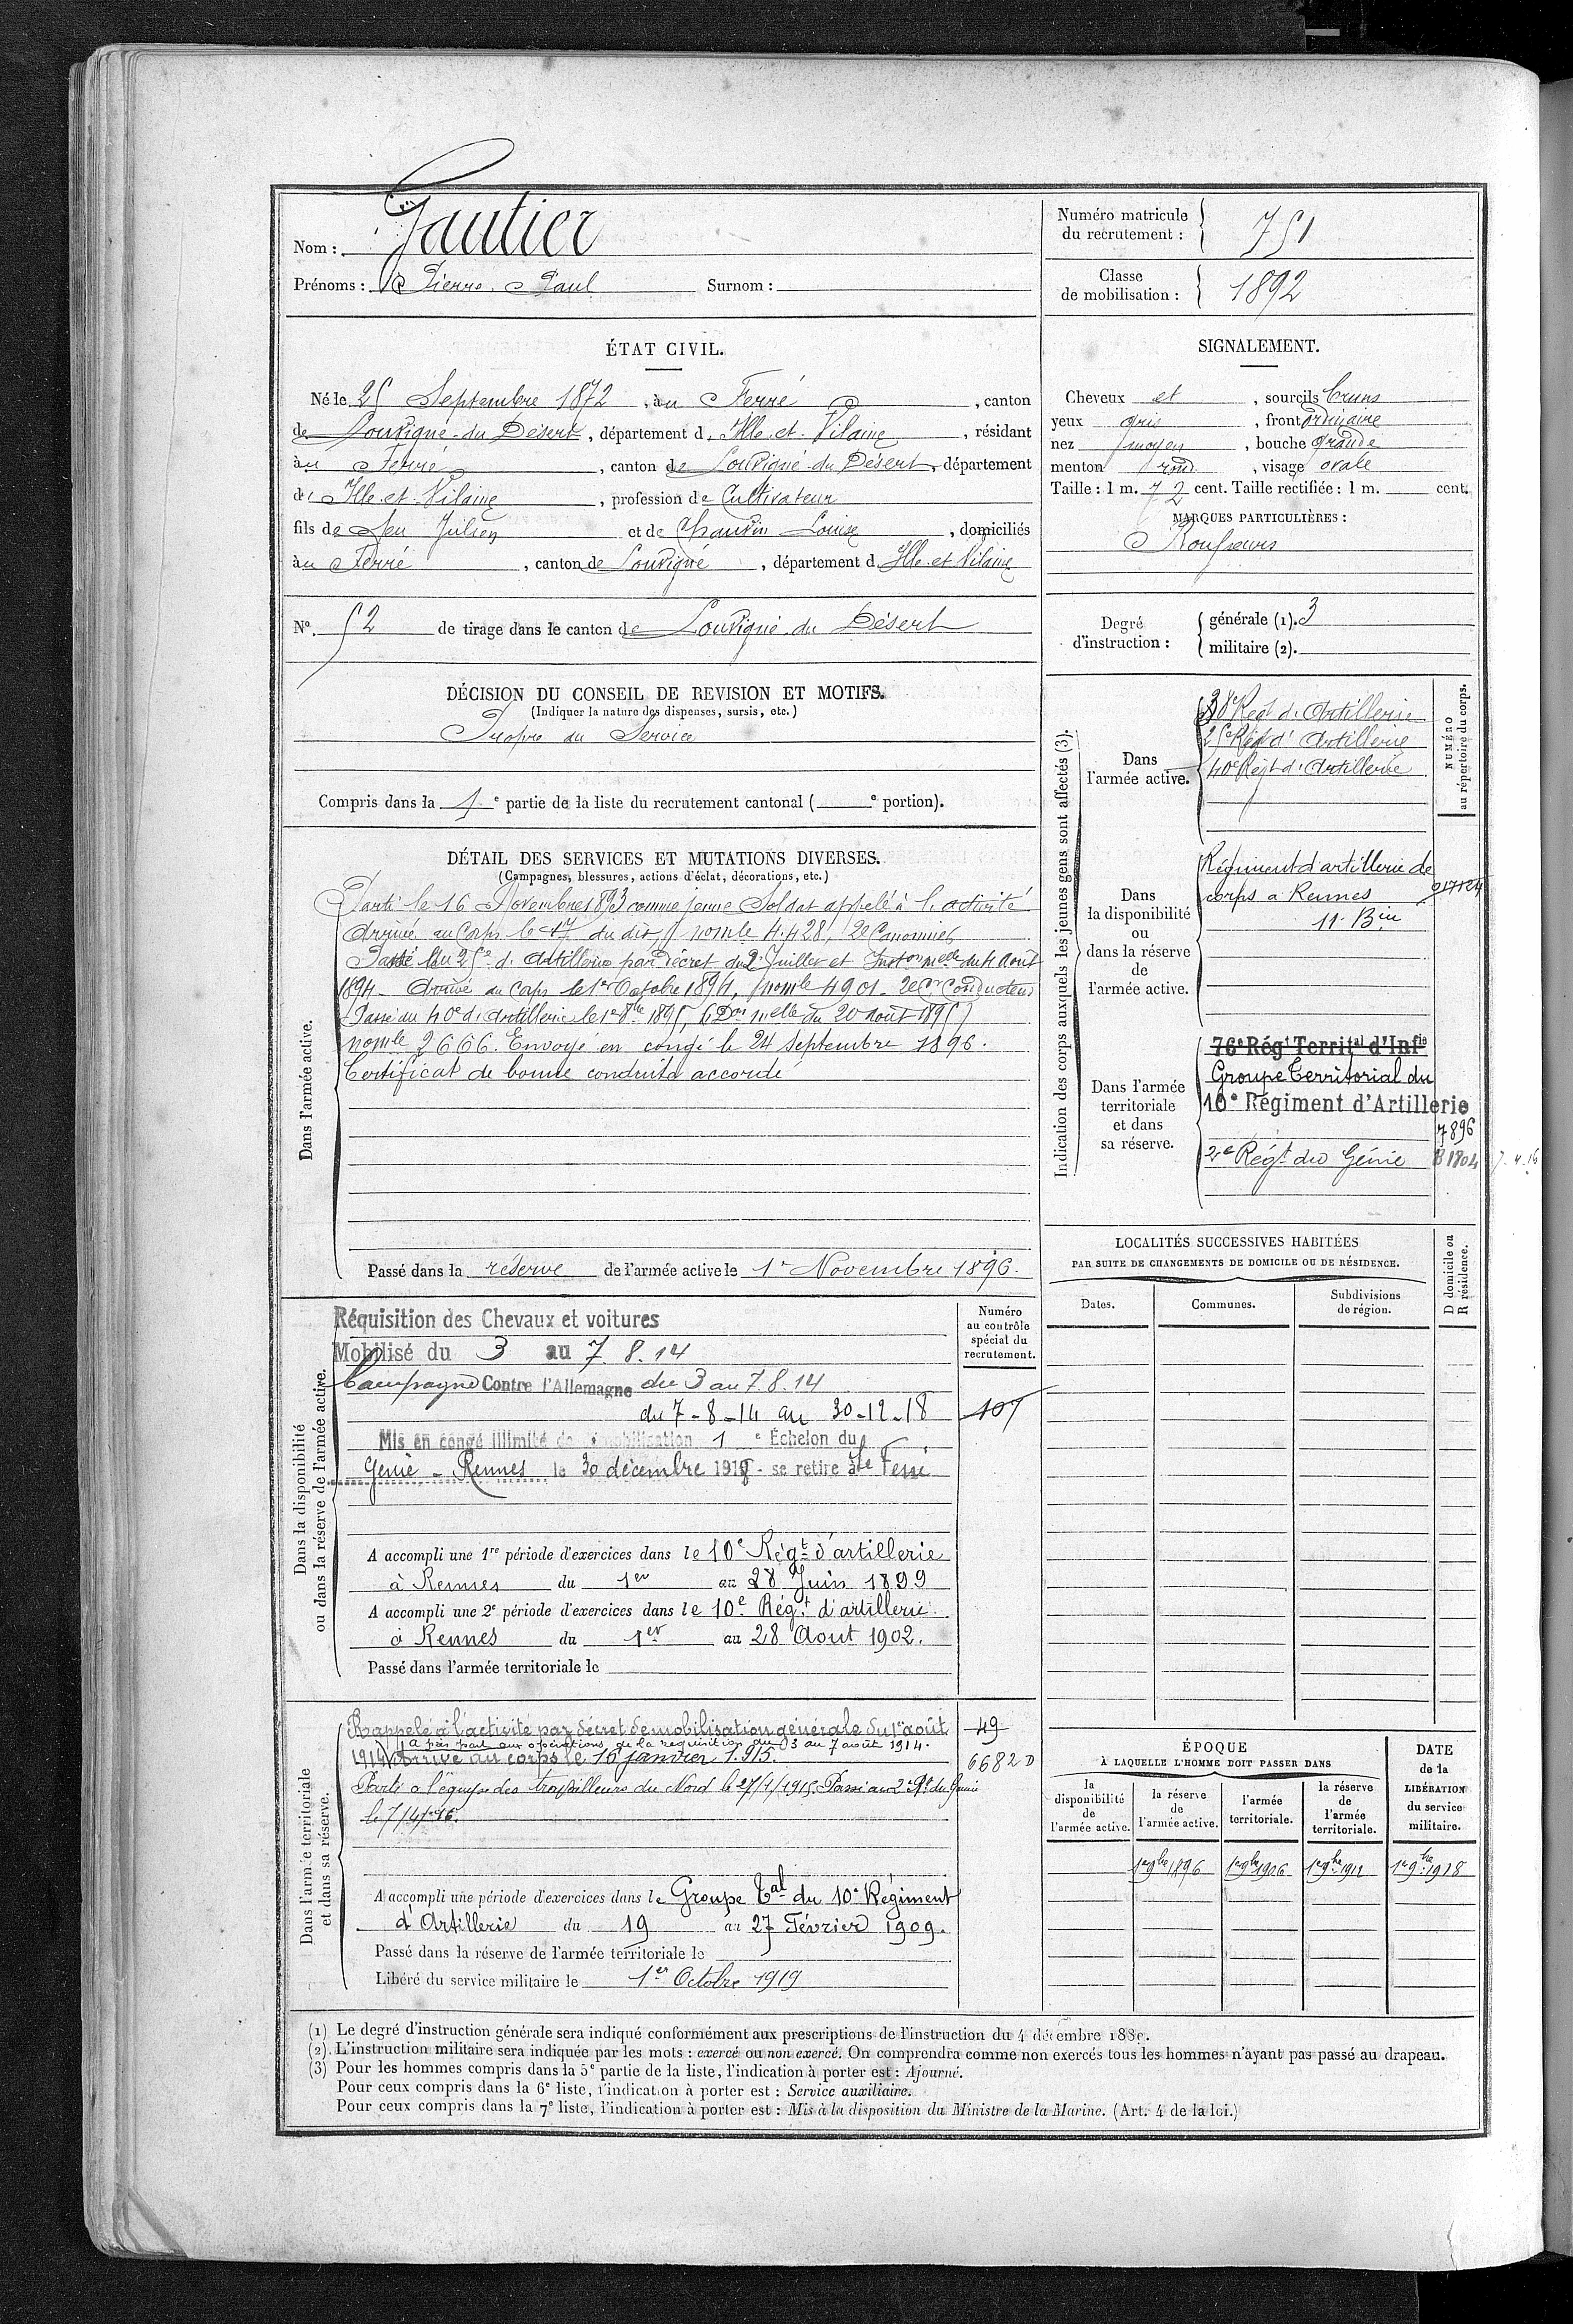 Nom : Gautier
Prénoms : Pierre Paul Surnom :
Numéro matricule du recrutement : 751
Classe de mobilisation : 1892
ÉTAT CIVIL.
Né le 25 Septembre 1872, au Ferré, canton
de Louvigné-du Désert, département d'Ille et Vilaine, résidant
au Ferré, canton de Louvigné du Désert, département
d'Ille et Vilaine, profession de Cultivateur
fils de feu Julien et de Chauvin Louise, domiciliés
au Ferré, canton de Louvigné, département d'Ille et Vilaine
N° 52 de tirage dans le canton de Louvigné du Désert
SIGNALEMENT.
Cheveux et , sourcils bruns
yeux gris , front ordinaire
nez moyen , bouche grande
menton rond , visage ovale
Taille : 1 m. 72 cent. Taille rectifiée : 1 m. cent.
MARQUES PARTICULIÈRES :
Degré d'instruction : générale (1). 3
militaire (2).
DÉCISION DU CONSEIL DE REVISION ET MOTIFS.
(Indiquer la nature des dispenses, sursis, etc.)
Propre au Service
Compris dans la 1e partie de la liste du recrutement cantonal ( e portion).
DÉTAIL DES SERVICES ET MUTATIONS DIVERSES.
(Campagnes, blessures, actions d'éclat, décorations, etc.)
Dans l'armée active.
Parti le 16 Novembre 1893 comme jeune Soldat appelé à l'activité
Arrivé au Corps le 17 du dit, nomle 4428, 2e Canonnier
Passé au 25e d'Artillerie par décret du 2 Juillet et Inston melle du 4 Août
1894 - Arrivé au Corps le 1er Octobre 1894, nomle 4901 - 2e Cr Conducteur
Passé au 40e d'Artillerie le 1er 8bre 1895, (Don melle du 20 août 1895)
nomle 2666. Envoyé en congé le 24 Septembre 1896.
Certificat de bonne conduite accordé
Passé dans la réserve de l'armée active le 1er Novembre 1896.
Indication des corps auxquels les jeunes gens sont affectés (3).
NUMÉRO au répertoire du corps.
Dans l'armée active.
38e Régt d'Artillerie
25e Régt d'Artillerie
40e Régt d'Artillerie
Dans la disponibilité ou dans la réserve de l'armée active.
Régiment d'artillerie de
corps à Rennes
11 Bie
Dans l'armée territoriale et dans sa réserve.
76e Régt Territal d'Infie
Groupe Territorial du
10e Régiment d'Artillerie
7896
2e Régt du Génie B 1804 7-4-16
LOCALITÉS SUCCESSIVES HABITÉES
PAR SUITE DE CHANGEMENTS DE DOMICILE OU DE RÉSIDENCE.
Dates. Communes. Subdivisions de région. D domicile ou R résidence.
Dans la disponibilité ou dans la réserve de l'armée active.
Numéro au contrôle spécial du recrutement.
Réquisition des Chevaux et voitures
Mobilisé du 3 au 7.8.14
Campagne Contre l'Allemagne du 3 au 7.8.14
du 7-8-14 au 30-12-18
107
Mis en congé illimité de démobilisation 1e Échelon du
Génie - Rennes le 30 décembre 1918 - se retire à Le Ferré
A accompli une 1re période d'exercices dans le 10e Régt d'artillerie
à Rennes du 1er au 28 Juin 1899
A accompli une 2e période d'exercices dans le 10e Régt d'artillerie
à Rennes du 1er au 28 Aout 1902.
Passé dans l'armée territoriale le
Dans l'armée territoriale et dans sa réserve.
Rappelé à l'activité par décret de mobilisation générale du 1er août 49
A pris part aux opérations de la réquisition du 3 au 7 août 1914.
1914 Arrivé au corps le 16 janvier 1915. 6682 D
le 27/1/1915. Passé au 2e Rt du Génie
le 7/4/16.
A accompli une période d'exercices dans le Groupe Tal du 10e Régiment
d'Artillerie du 19 au 27 Février 1909.
Passé dans la réserve de l'armée territoriale le
Libéré du service militaire le 1er Octobre 1919
ÉPOQUE
À LAQUELLE L'HOMME DOIT PASSER DANS
la disponibilité de l'armée active. la réserve de l'armée active. l'armée territoriale. la réserve de l'armée territoriale.
DATE de la LIBÉRATION du service militaire.
1er 9bre 1896 1er 9bre 1906 1er 9bre 1912 1er 9bre 1918
(1) Le degré d'instruction générale sera indiqué conformément aux prescriptions de l'instruction du 4 décembre 1889.
(2) L'instruction militaire sera indiquée par les mots : exercé ou non exercé. On comprendra comme non exercés tous les hommes n'ayant pas passé au drapeau.
(3) Pour les hommes compris dans la 5e partie de la liste, l'indication à porter est : Ajourné.
Pour ceux compris dans la 6e liste, l'indication à porter est : Service auxiliaire.
Pour ceux compris dans la 7e liste, l'indication à porter est : Mis à la disposition du Ministre de la Marine. (Art. 4 de la loi.)